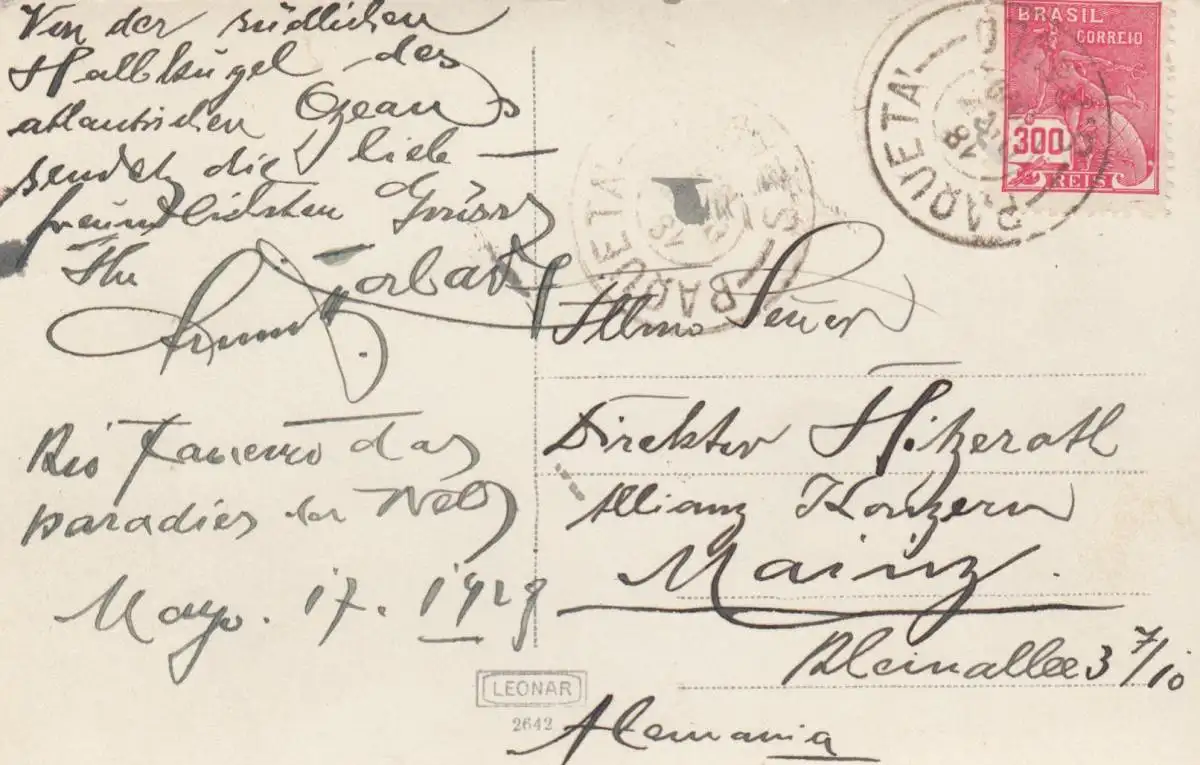 Von der südlichen
Halbkugel des
atlantischen Ozeans
sendet die lieb-
freundlichsten Grüsse
Ihr
Rio Janeiro das
paradies der Welt
Mayo. 17. 1928
BRASIL
CORREIO
300
REIS
PAQUETA'
PAQUETA
Illmo Señor
Direktor Hitzeroth
Allianz Konzern
Mainz.
Rheinallee 3 7/10
Alemania
LEONAR
2642